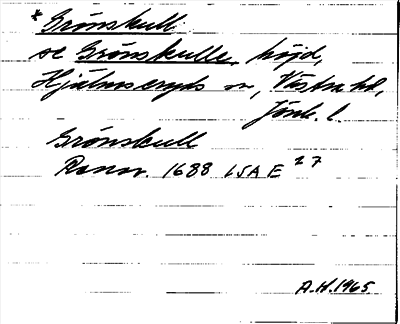 *Grönskull
se Grönskulle, höjd,
Hjälmseryds sn, Västra hd,
Jönk. l.
Grönskull
Rannr. 1688 LSA E 27
A.H. 1965